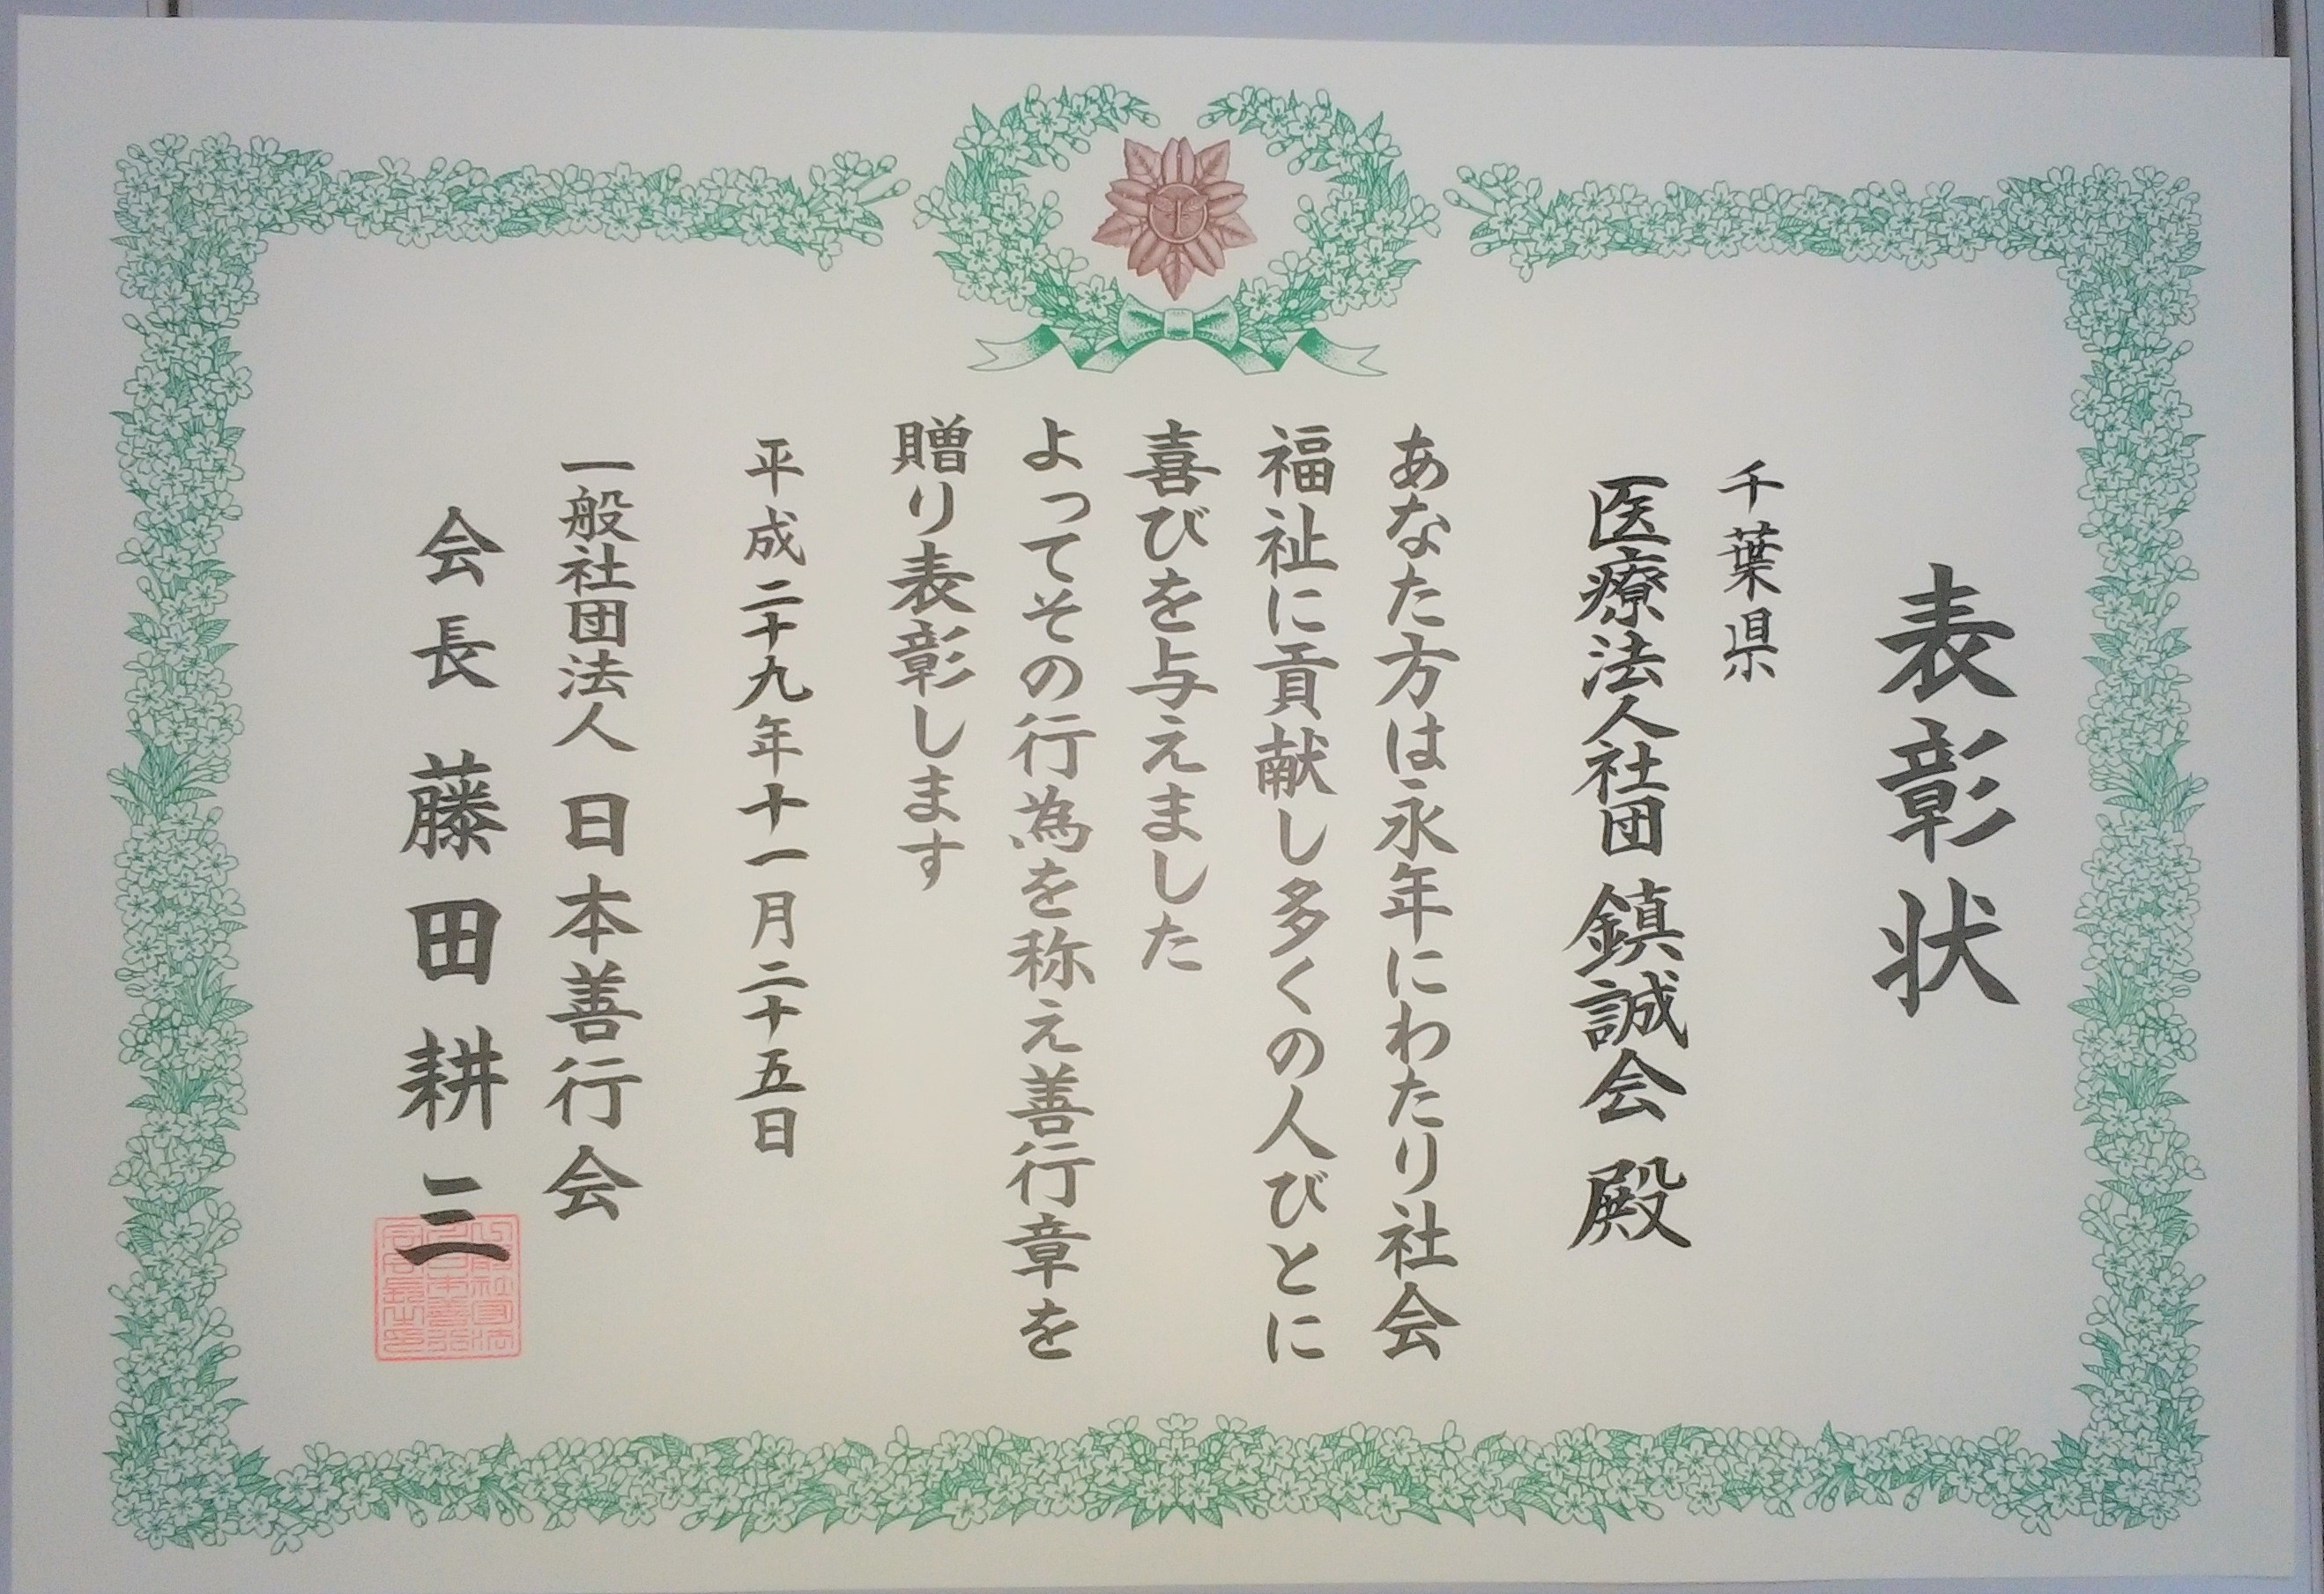 表彰状
千葉県
医療法人社団 鎮誠会 殿
あなた方は永年にわたり社会
福祉に貢献し多くの人びとに
喜びを与えました
よってその行為を称え善行章を
贈り表彰します
平成二十九年十一月二十五日
一般社団法人 日本善行会
会長 藤田耕三